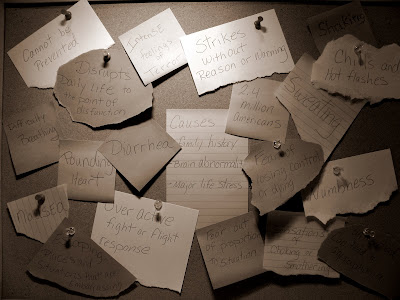 Cannot be
Prevented
Intense
feeling of
Terror
Strikes
without
Reason or Warning
Shaking
Chills and
Hot flashes
Disrupts
Daily life to
the point of
disfunction
2.4
million
Americans
Sweating
Difficulty
Breathing
Pounding
Heart
Diarrhea
Causes
- Family history
- Brain abnormal
- Major life stress
Fear
losing control
or dying
Numbness
Nausea
Over active
fight or flight
response
Fear out
of proportion
to situation
Choking or
Smothering